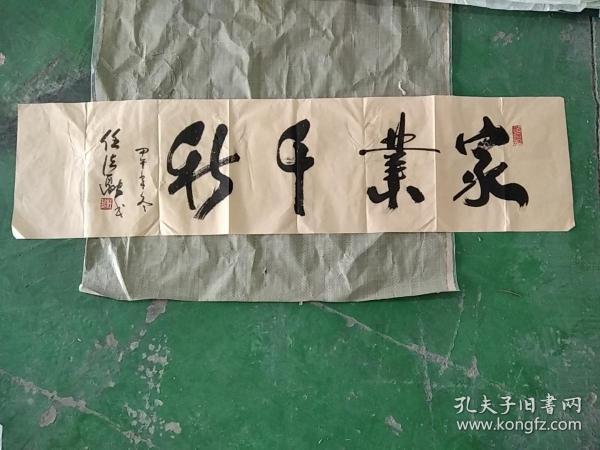 家業千秋
甲午年冬
任法融书
孔夫子旧书网
www.kongfz.com